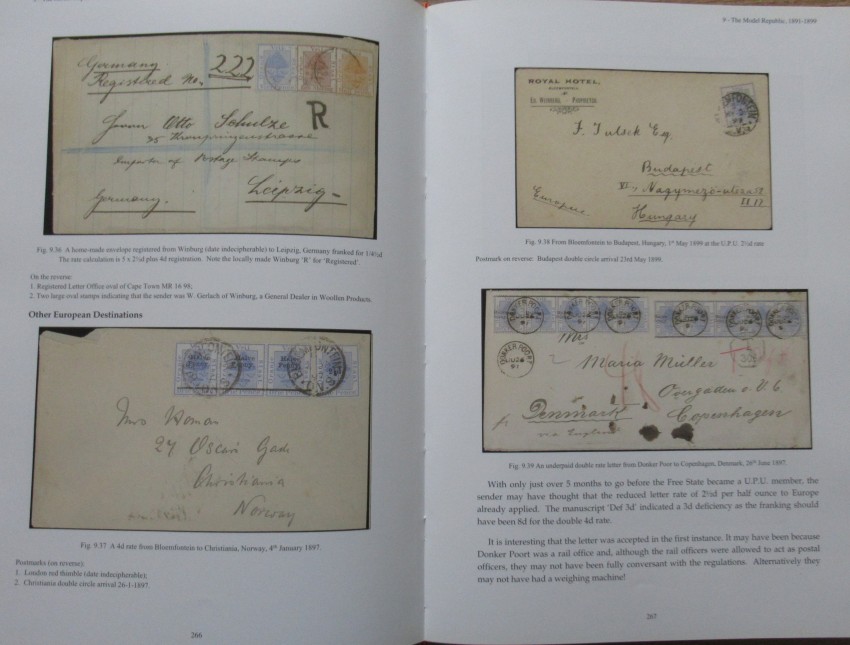 Germany
Registered No. 222
R
Herrn Otto Schulze
35 Kronprinzenstrasse
Importer of Postage Stamps
Leipzig
Germany.
Fig. 9.36 A home-made envelope registered from Winburg (date indecipherable) to Leipzig, Germany franked for 1/4½d
The rate calculation is 5 x 2½d plus 4d registration. Note the locally made Winburg 'R' for 'Registered'.
On the reverse:
1. Registered Letter Office oval of Cape Town MR 16 98;
2. Two large oval stamps indicating that the sender was W. Gerlach of Winburg, a General Dealer in Woollen Products.
Other European Destinations
Mrs Homan
24 Oscars Gade
Christiania
Norway
Fig. 9.37 A 4d rate from Bloemfontein to Christiania, Norway, 4th January 1897.
Postmarks (on reverse):
1. London red thimble (date indecipherable);
2. Christiania double circle arrival 26-1-1897.
266
9 - The Model Republic, 1891-1899
ROYAL HOTEL,
F. Tulsck Eq.
Budapest
VI. Nagymező-utcza
II 17
Europe
Hungary
Fig. 9.38 From Bloemfontein to Budapest, Hungary, 1st May 1899 at the U.P.U. 2½d rate
Postmark on reverse: Budapest double circle arrival 23rd May 1899.
DONKER POORT
Maria Müller
Overgaden o. V. 6
Denmark Copenhagen
via England
Fig. 9.39 An underpaid double rate letter from Donker Poort to Copenhagen, Denmark, 26th June 1897.
With only just over 5 months to go before the Free State became a U.P.U. member, the
sender may have thought that the reduced letter rate of 2½d per half ounce to Europe
already applied. The manuscript 'Def 3d' indicated a 3d deficiency as the franking should
have been 8d for the double 4d rate.
It is interesting that the letter was accepted in the first instance. It may have been because
Donker Poort was a rail office and, although the rail officers were allowed to act as postal
officers, they may not have been fully conversant with the regulations. Alternatively they
may not have had a weighing machine!
267